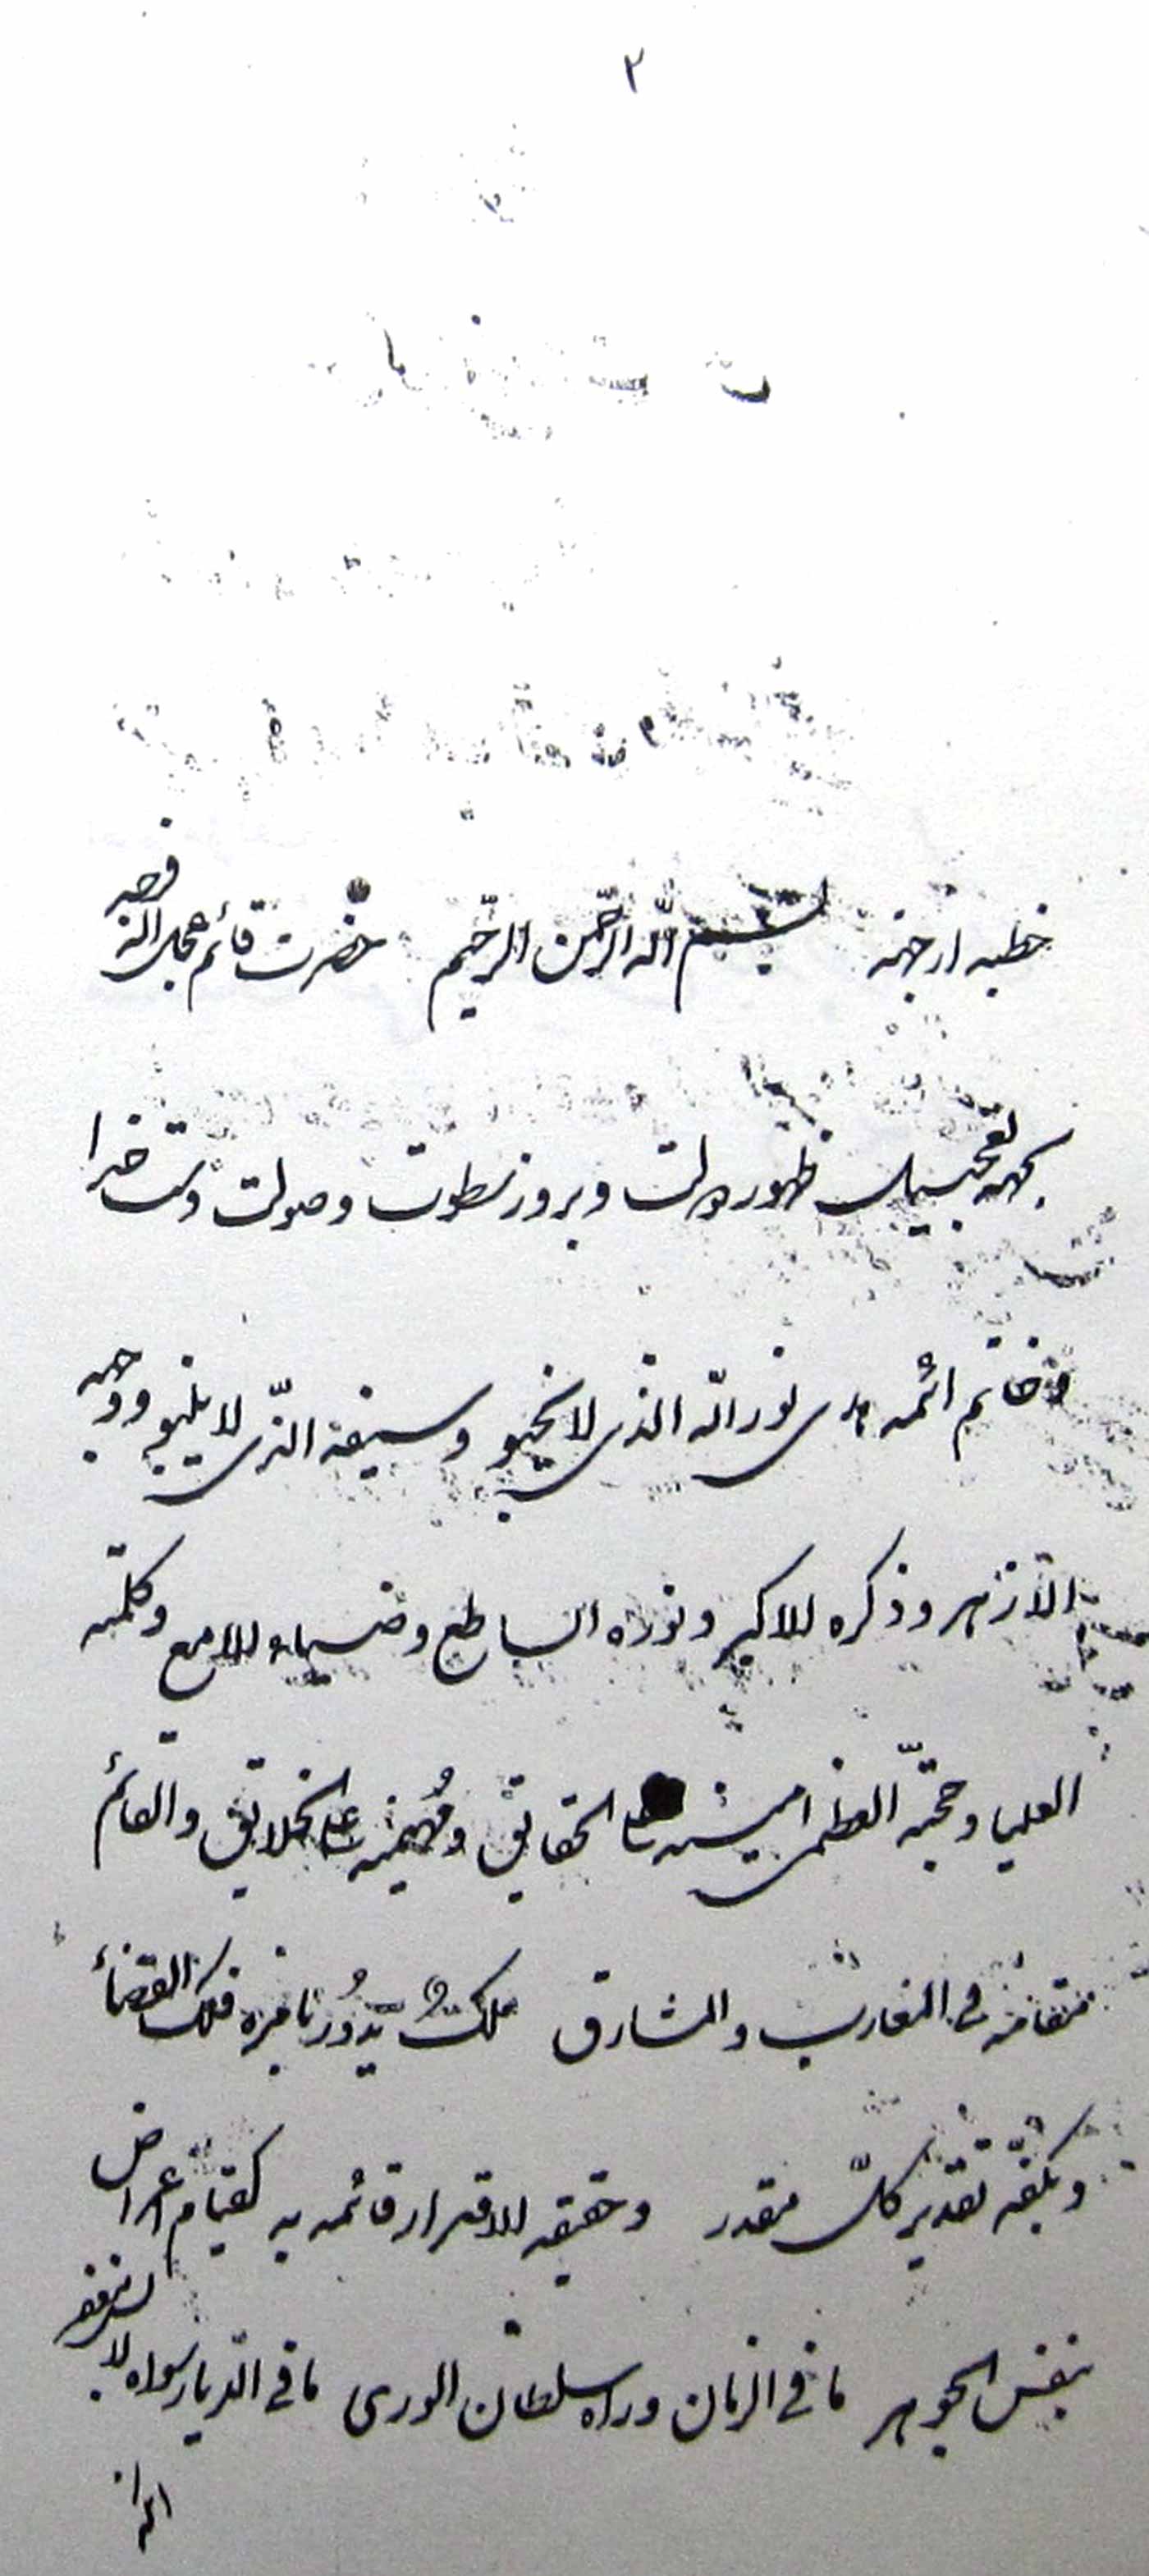 ۲
خطبه ارجهنه بسم الله الرحمن الرحیم حضرت قائم عجل الله فرجه
بجهة تعجیل ظهور دولت و بروز سطوت و صولت دست خدا
و خاتم ائمه هدی نور الله الذی لا یخبو و سیفه الذی لا ینبو و وجهه
الازهر و ذکره الاکبر و نوره الساطع و ضیاءه اللامع و کلمته
العلیا و حجته العظمی امینه علی الحقایق و مُهیمنه علی الخلایق و القائم
مقامه فی المغارب و المشارق ملکٌ یَدُورُ بامره فلک القضاء
و بکفّه تقدیر کلّ مقدر و حقیقه الاقدار قائمه به کقیام اعراض
بنفس الجوهر ما فی الزمان وراه سلطان الوری ما فی الدیار سواه لابس مغفر